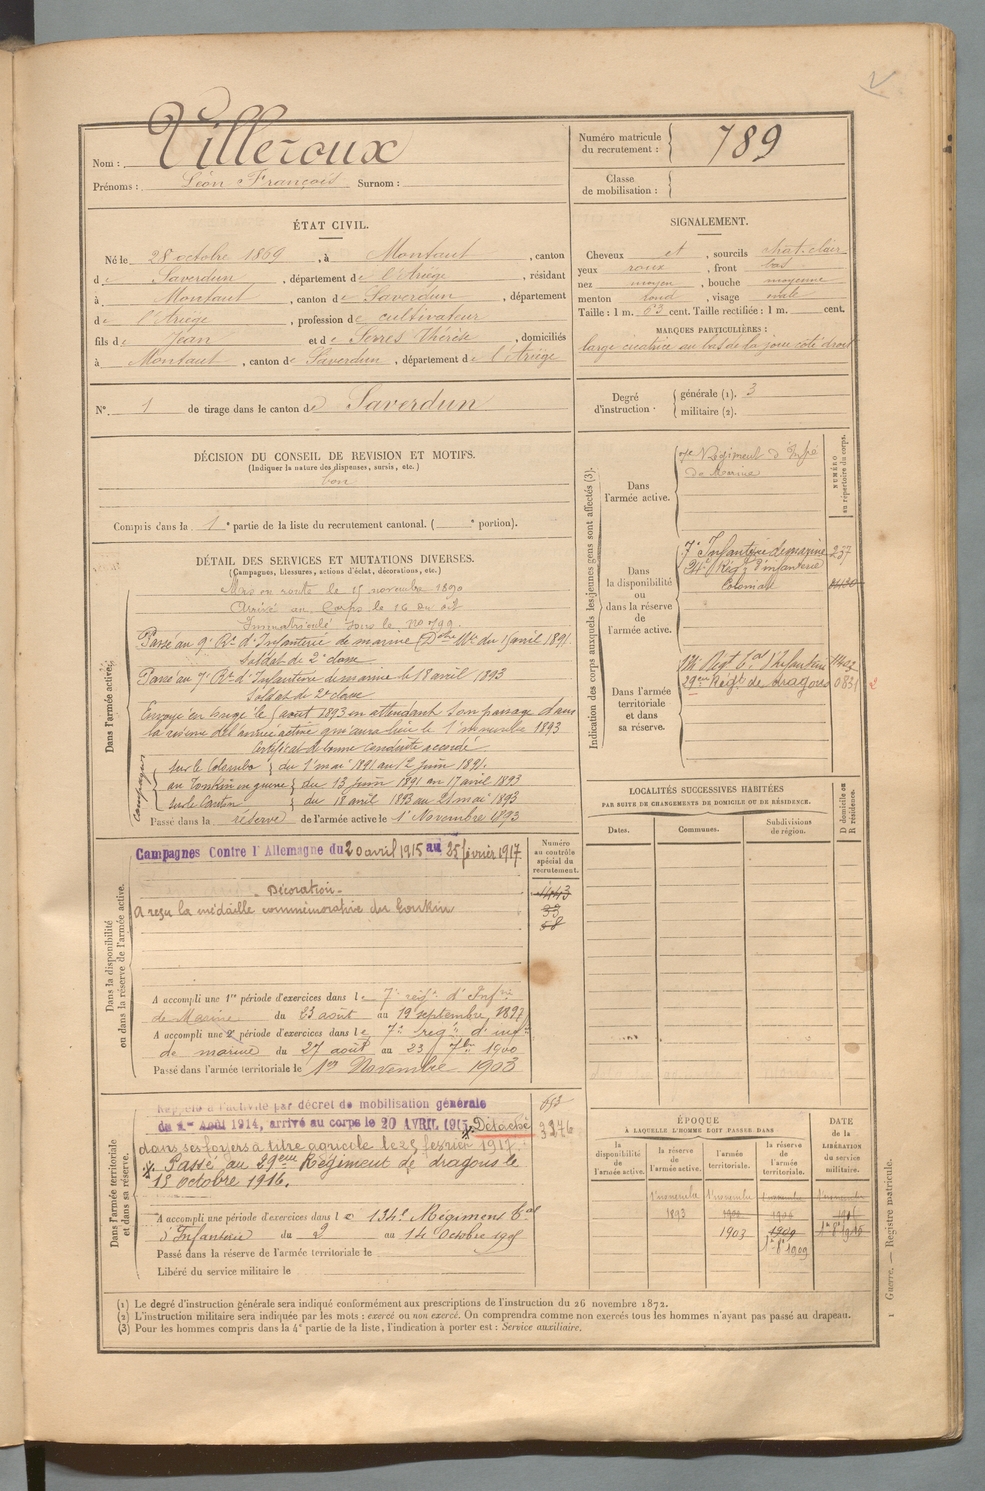 Nom : Villeroux
Prénoms : Léon François Surnom :
Numéro matricule du recrutement : 789
Classe de mobilisation :
ÉTAT CIVIL.
Né le 28 octobre 1869, à Montaut, canton
de Saverdun, département de l'Ariège, résidant
à Montaut, canton de Saverdun, département
de l'Ariège, profession de cultivateur
fils de Jean et de Serres Thérèse, domiciliés
à Montaut, canton de Saverdun, département de l'Ariège
N° 1 de tirage dans le canton de Saverdun
SIGNALEMENT.
Cheveux et, sourcils chat. clair
yeux roux, front bas
nez moyen, bouche moyenne
menton rond, visage ovale
Taille : 1 m. 63 cent. Taille rectifiée : 1 m. cent.
MARQUES PARTICULIÈRES :
large cicatrice au bas de la joue côté droit
Degré d'instruction
générale (1). 3
militaire (2).
DÉCISION DU CONSEIL DE REVISION ET MOTIFS.
(Indiquer la nature des dispenses, sursis, etc.)
bon
Compris dans la 1e partie de la liste du recrutement cantonal. ( e portion).
DÉTAIL DES SERVICES ET MUTATIONS DIVERSES.
(Campagnes, blessures, actions d'éclat, décorations, etc.)
Dans l'armée active.
Mis en route le 15 novembre 1890
Arrivé au Corps le 16 du dit
Immatriculé sous le no 799.
Passé au 9e Rt d'Infanterie de marine du 1 avril 1891.
Soldat de 2e classe
Passé au 7e Rt d'Infanterie de marine le 18 avril 1893
Soldat de 2e classe
Envoyé en congé le 5 août 1893 en attendant son passage dans
la réserve de l'armée active qui aura lieu le 1er novembre 1893
Certificat de bonne conduite accordé
Campagnes
sur le Colombo du 1er mai 1891 au 12 juin 1891.
au Tonkin en guerre du 13 juin 1891 au 17 avril 1893
sur le Canton du 18 avril 1893 au 21 mai 1893
Passé dans la réserve de l'armée active le 1er Novembre 1893
Dans la disponibilité ou dans la réserve de l'armée active.
Numéro au contrôle spécial du recrutement.
Campagnes Contre l'Allemagne du 20 avril 1915 au 25 février 1917
1443
33
58
Décoration
A reçu la médaille commémorative du Tonkin
A accompli une 1re période d'exercices dans le 7e régt d'Infie
de Marine du 23 août au 19 septembre 1897
A accompli une 2e période d'exercices dans le 7e régt d'infie
de marine du 27 août au 23 7bre 1900
Passé dans l'armée territoriale le 1er Novembre 1903
Dans l'armée territoriale et dans sa réserve.
Rappelé à l'activité par décret de mobilisation générale
du 1er Août 1914, arrivé au corps le 20 AVRIL 1915. Détaché
3276
dans ses foyers à titre agricole le 25 février 1917.
Passé au 29eme Régiment de dragons le
13 octobre 1916.
A accompli une période d'exercices dans le 134e Régiment Tal
d'Infanterie du 2 au 14 Octobre 1905
Passé dans la réserve de l'armée territoriale le
Libéré du service militaire le
Indication des corps auxquels les jeunes gens sont affectés (3).
NUMÉRO au répertoire du corps.
Dans l'armée active.
7e Régiment d'Infie
de Marine
Dans la disponibilité ou dans la réserve de l'armée active.
7e Infanterie de marine 237
24e Régt d'infanterie
Coloniale
Dans l'armée territoriale et dans sa réserve.
134 Régt Tal d'Infanterie
29eme Régt de dragons 0831 2
LOCALITÉS SUCCESSIVES HABITÉES
PAR SUITE DE CHANGEMENTS DE DOMICILE OU DE RÉSIDENCE.
Dates. Communes. Subdivisions de région. D domicile ou R résidence.
ÉPOQUE
À LAQUELLE L'HOMME DOIT PASSER DANS
la disponibilité de l'armée active.
la réserve de l'armée active.
l'armée territoriale.
la réserve de l'armée territoriale.
DATE de la LIBÉRATION du service militaire.
1er novembre 1er novembre 1er novembre 1er novembre
1893 1906 1906 1916
1903 1909
1er 8e 1909
(1) Le degré d'instruction générale sera indiqué conformément aux prescriptions de l'instruction du 26 novembre 1872.
(2) L'instruction militaire sera indiquée par les mots : exercé ou non exercé. On comprendra comme non exercés tous les hommes n'ayant pas passé au drapeau.
(3) Pour les hommes compris dans la 4e partie de la liste, l'indication à porter est : Service auxiliaire.
1 Guerre. — Registre matricule.